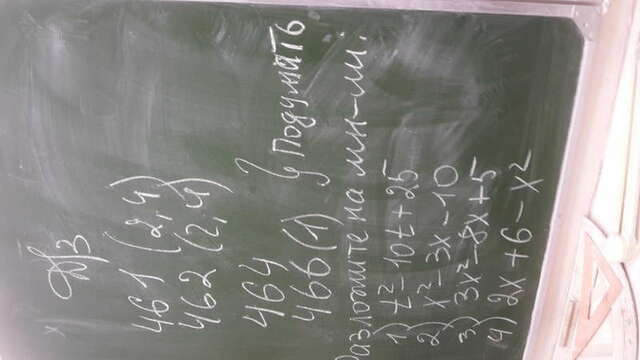 Д/З
461 (2,4)
462 (2,4)
464
466(1) } Подумать
Разложите на мн-ли:
1) t²-10t+25
2) x²-3x-10
3) 3x²-8x+5
4) 2x+6-x²